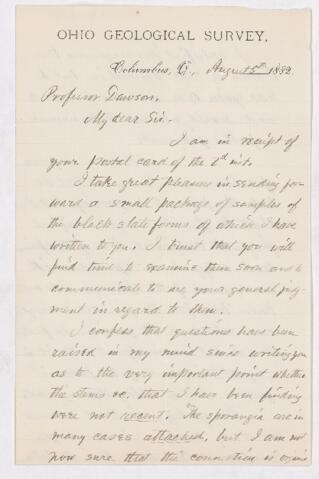 OHIO GEOLOGICAL SURVEY.
Columbus, O., August 5th 1882
Professor Dawson.
My dear Sir.
I am in receipt of
your postal card of the 2d inst.
I take great pleasure in sending for-
ward a small package of samples of
the black slate forms of which I have
written to you. I trust that you will
find time to examine them soon and to
communicate to me your general judg-
ment in regard to them.
I confess that questions have been
raised in my mind since writing you
as to the very important point whether
the stems &c. that I have been finding
were not recent. The sporangia are in
many cases attached, but I am not
now sure that the connection is